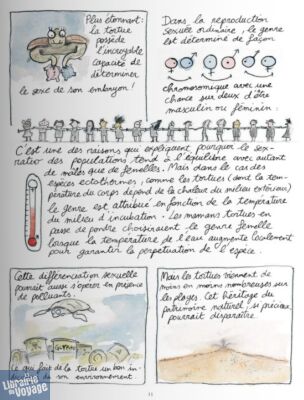 Plus étonnant:
la tortue
possède
l'incroyable
capacité de
déterminer
le sexe de son embryon!
Dans la reproduction
sexuée ordinaire, le genre
est déterminé de façon
chromosomique avec une
chance sur deux d'être
masculin ou féminin.
C'est une des raisons qui expliquent pourquoi le sex-
ratio des populations tend à l'équilibre avec autant
de mâles que de femelles. Mais dans le cas des
espèces ectothermes, comme les tortues (dont la tem-
pérature du corps dépend de la chaleur du milieu extérieur)
le genre est attribué en fonction de la température
du milieu d'incubation. Les mamans tortues en
passe de pondre choisiraient le genre femelle
lorsque la température de l'eau augmente localement
pour garantir la perpétuation de l'espèce.
Cette différenciation sexuelle
pourrait aussi s'opérer en présence
de polluants.
ce qui fait de la tortue un bon in-
de son environnement
Mais les tortues viennent de
moins en moins nombreuses sur
les plages. Cet héritage du
patrimoine naturel, si précieux,
pourrait disparaître.
11
Librairie du
Voyage